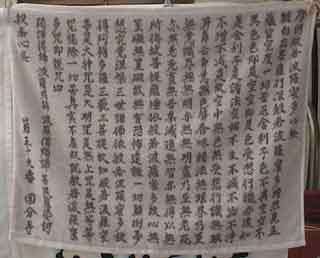 摩訶般若波羅蜜多心経
観自在菩薩行深般若波羅蜜多時照見五
蘊皆空度一切苦厄舎利子色不異空空不
異色色即是空空即是色受想行識亦復如
是舎利子是諸法空相不生不滅不垢不浄
不増不減是故空中無色無受想行識無眼
耳鼻舌身意無色声香味触法無眼界乃至
無意識界無無明亦無無明尽乃至無老死
亦無老死尽無苦集滅道無智亦無得以無
所得故菩提薩埵依般若波羅蜜多故心無
罣礙無罣礙故無有恐怖遠離一切顛倒夢
想究竟涅槃三世諸仏依般若波羅蜜多故
得阿耨多羅三藐三菩提故知般若波羅蜜
多是大神呪是大明呪是無上呪是無等等
呪能除一切苦真実不虚故説般若波羅蜜
多呪即説呪曰
羯諦羯諦波羅羯諦波羅僧羯諦菩提薩婆訶
般若心経
第五十九番 国分寺